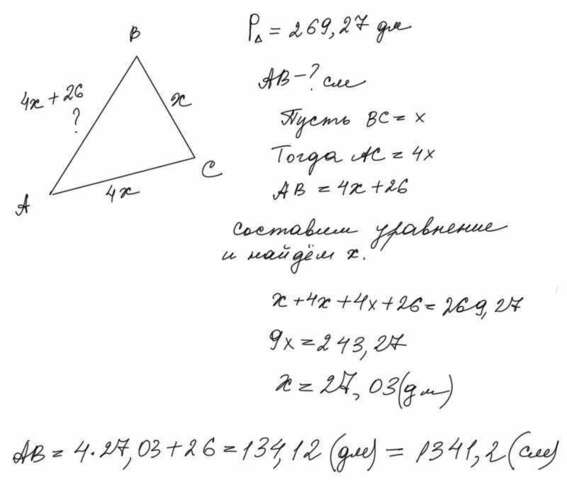 B
P△ = 269,27 дм
AB - ? см
4x + 26
?
x
Пусть BC = x
Тогда AC = 4x
C
4x
AB = 4x + 26
A
составим уравнение
и найдём x.
x + 4x + 4x + 26 = 269,27
9x = 243,27
x = 27,03 (дм)
AB = 4 · 27,03 + 26 = 134,12 (дм) = 1341,2 (см)